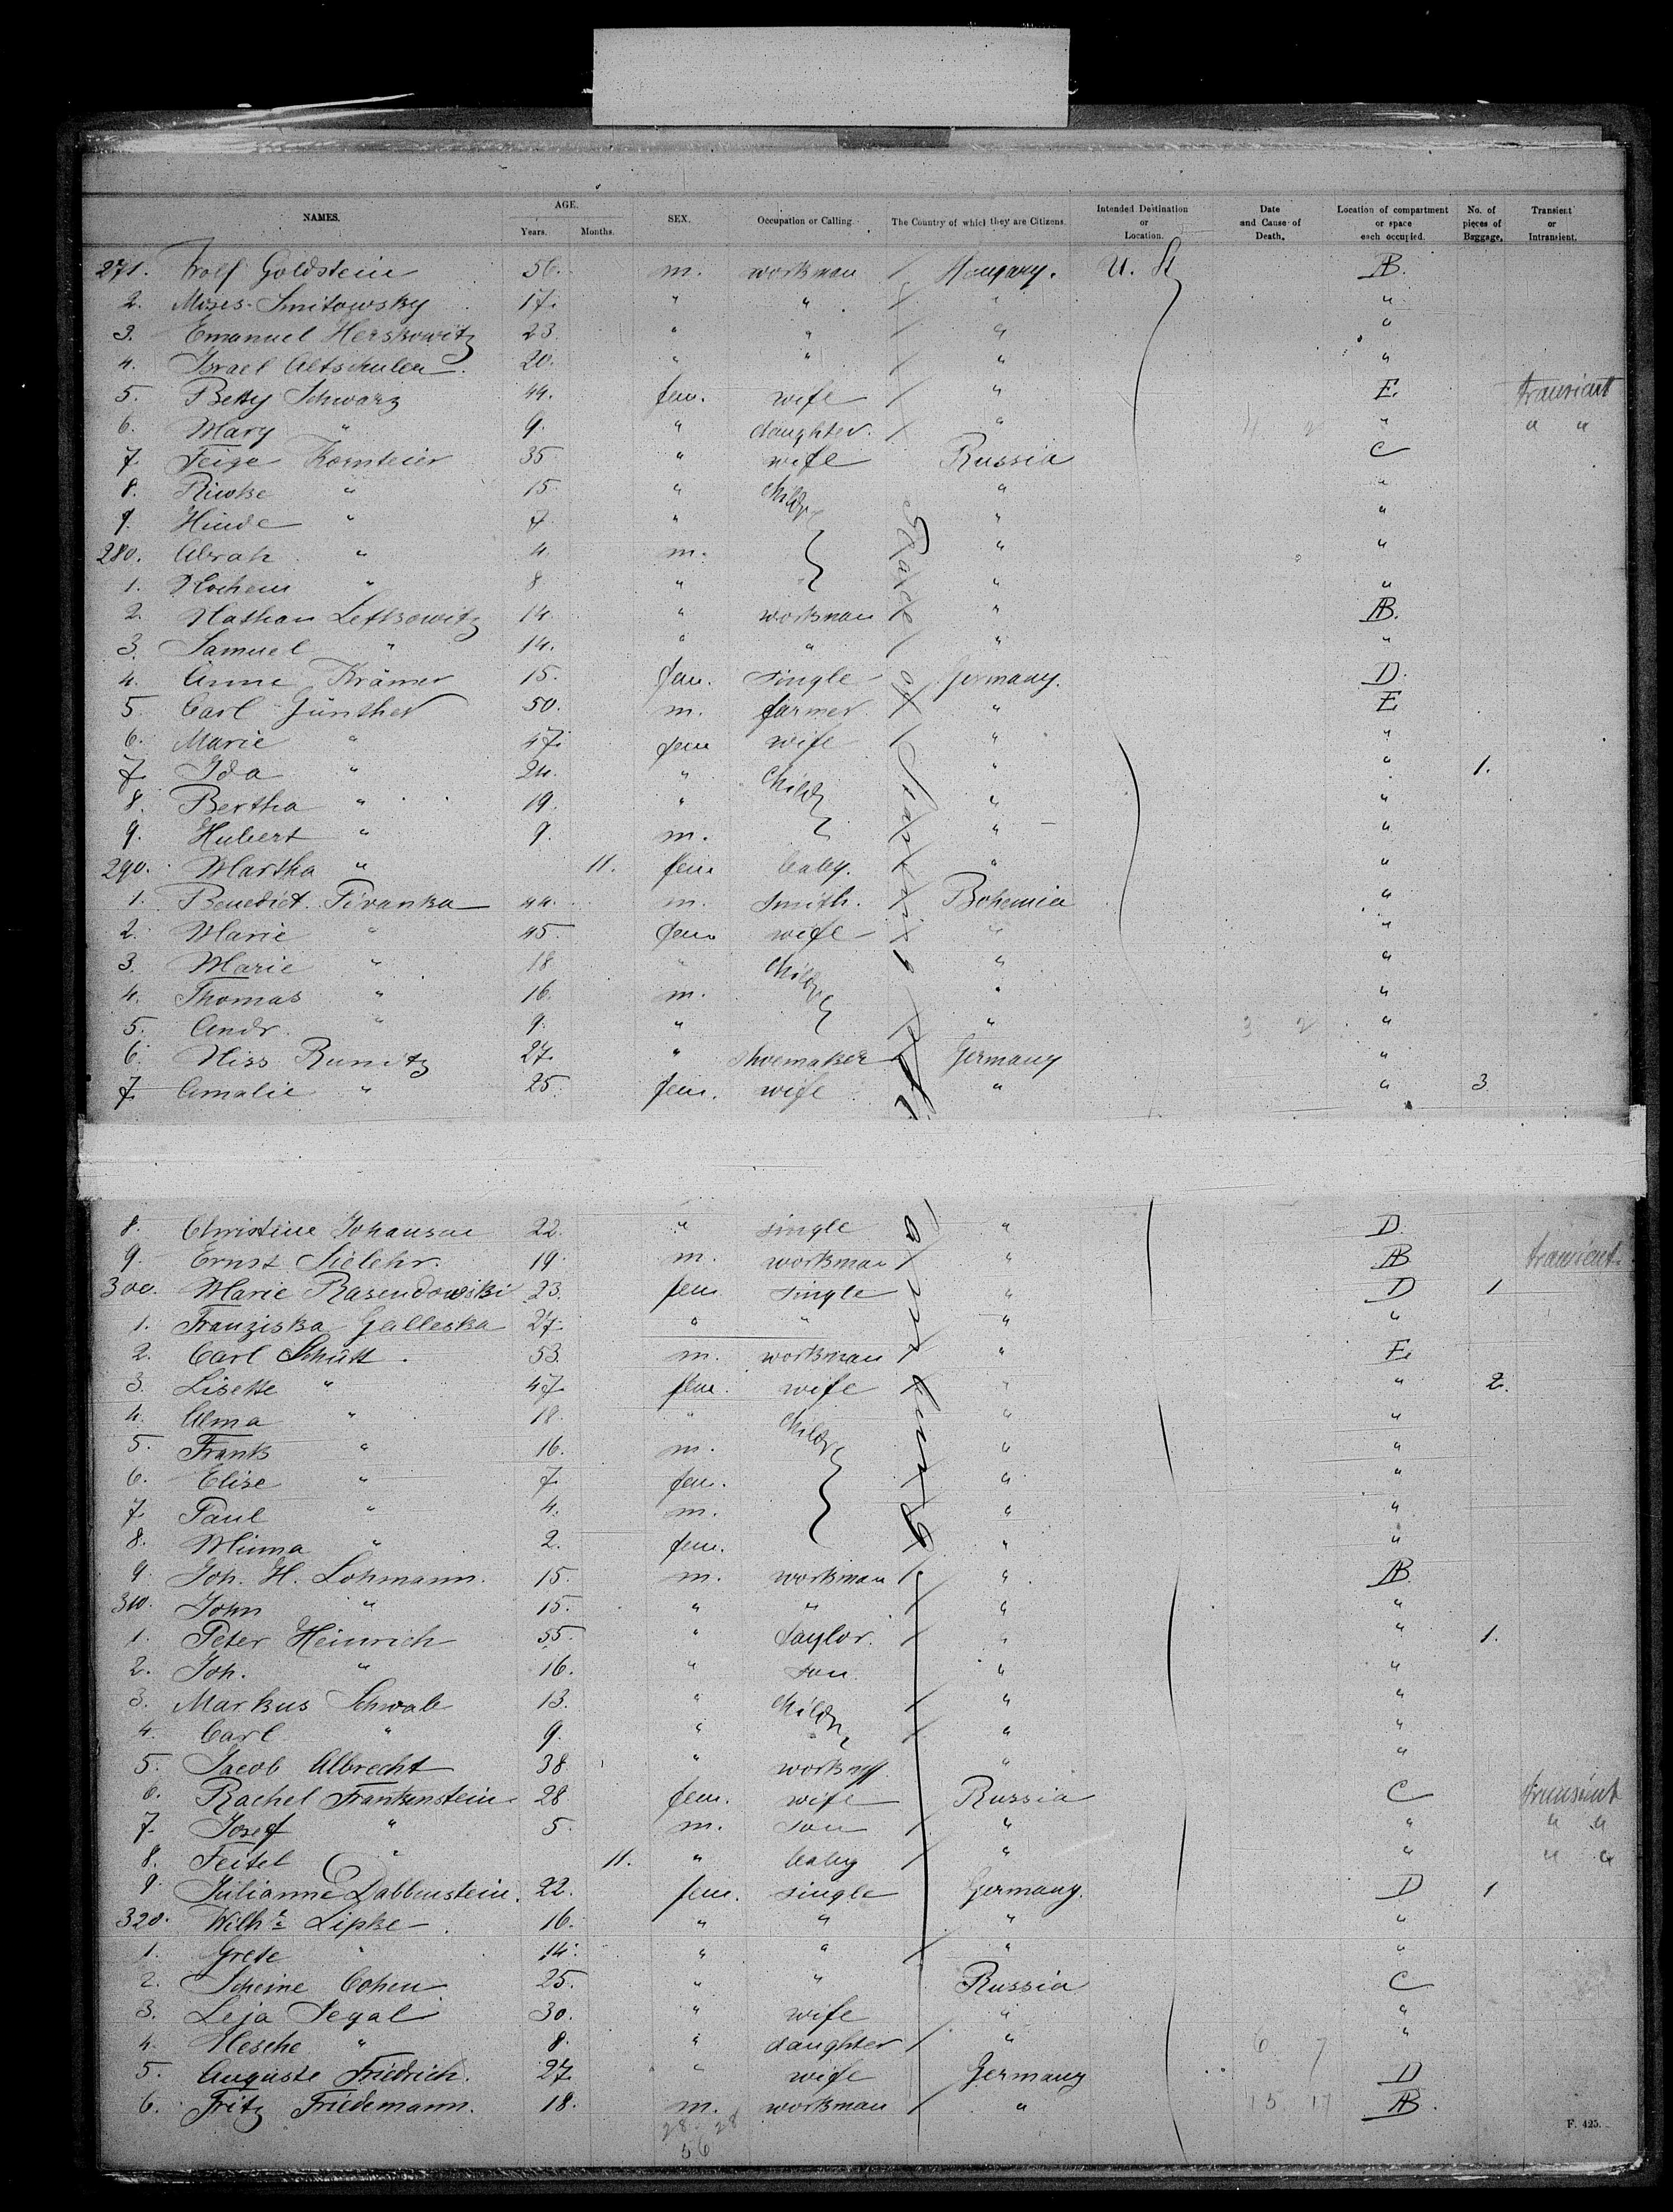 NAMES. AGE. Years. Months. SEX. Occupation or Calling. The Country of which they are Citizens. Intended Destination or Location. Date and Cause of Death. Location of compartment or space each occupied. No. of pieces of Baggage. Transient or Intransient.
271. Wolf Goldstein 56. m. workman / Hungary. U. St AB.
2. Moses Smitowsky 17. " " / " "
3. Emanuel Herskowitz 23. " " / " "
4. Israel Altschuler 20. " " / " "
5. Betty Schwarz 44. fem. wife / " E. transient
6. Mary " 9. " daughter. / " 4 2 " " "
7. Feige Kornteier 35. " wife Russia C
8. Riwke " 15. " Childr " "
9. Hinde " 7. " " "
280. Abrah " 4. m. " "
1. Nochem " 8. " " "
2. Nathan Lefkowitz 14. " workman " AB.
3. Samuel " 14. " " / " "
4. Anne Krämer 15. fem. single Germany. D.
5. Carl Günther 50. m. farmer " E
6. Marie " 47. fem wife / " "
7. Ida " 24. " Childr " " 1.
8. Bertha " 19. " " "
9. Hubert " 9. m. " "
290. Martha " 11. fem baby. " "
1. Benedict Pivanka 44. m. Smith. Bohemia "
2. Marie " 45. fem wife " "
3. Marie " 18 " Childr " "
4. Thomas " 16. m. " "
5. Andr. " 9. " " 3 2 "
6. Niss Runitz 27. " Shoemaker Germany "
7. Amalie " 25. fem. wife " " 3
8. Christine Johansen 22. " single " D.
9. Ernst Sielehr. 19. m. workman / " AB transient.
300. Marie Rasendowski 23. fem single " D 1
1. Franziska Galleska 27. " " " "
2. Carl Schütt. 53. m. workman " E
3. Lisette " 47. fem. wife " " 2.
4. Alma " 18. " Childr " "
5. Frank " 16. m. " "
6. Elise " 7. fem. " "
7. Paul " 4. m. " "
8. Minna " 2. fem. " "
9. Joh. H. Lohmann. 15. m. workman / " AB.
310. John " 15. " " / " "
1. Peter Heinrich 55. " Taylor. / " " 1.
2. Joh. " 16. " son " "
3. Markus Schwab 13. " Childr / " "
4. Carl " 9. " / " "
5. Jacob Albrecht 38 " " "
6. Rachel Frankenstein 28 fem. wife Russia C transient
7. Josef " 5. m. son / " " " "
8. Feitel " 11. " baby / " " " "
9. Julianne Dabbenstein. 22. fem. single Germany. D 1
320. Wilh. Lipke 16. " " " "
1. Grete " 14. " " / " "
2. Scheine Cohen 25. " " Russia C
3. Leja Segal 30. " wife " "
4. Hesche " 8. " daughter / " 6 7 "
5. Auguste Friedrich. 27. " wife Germany D
6. Fritz Friedemann. 18. m. workman / " 15 17 AB.
28 28
56
F. 425.